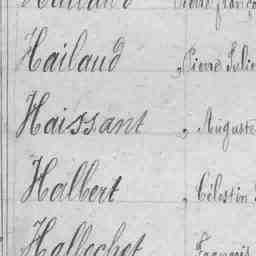 Hailaud Pierre Julie
Haissant „ Auguste
Halbert „ Célestin
Hallechet François